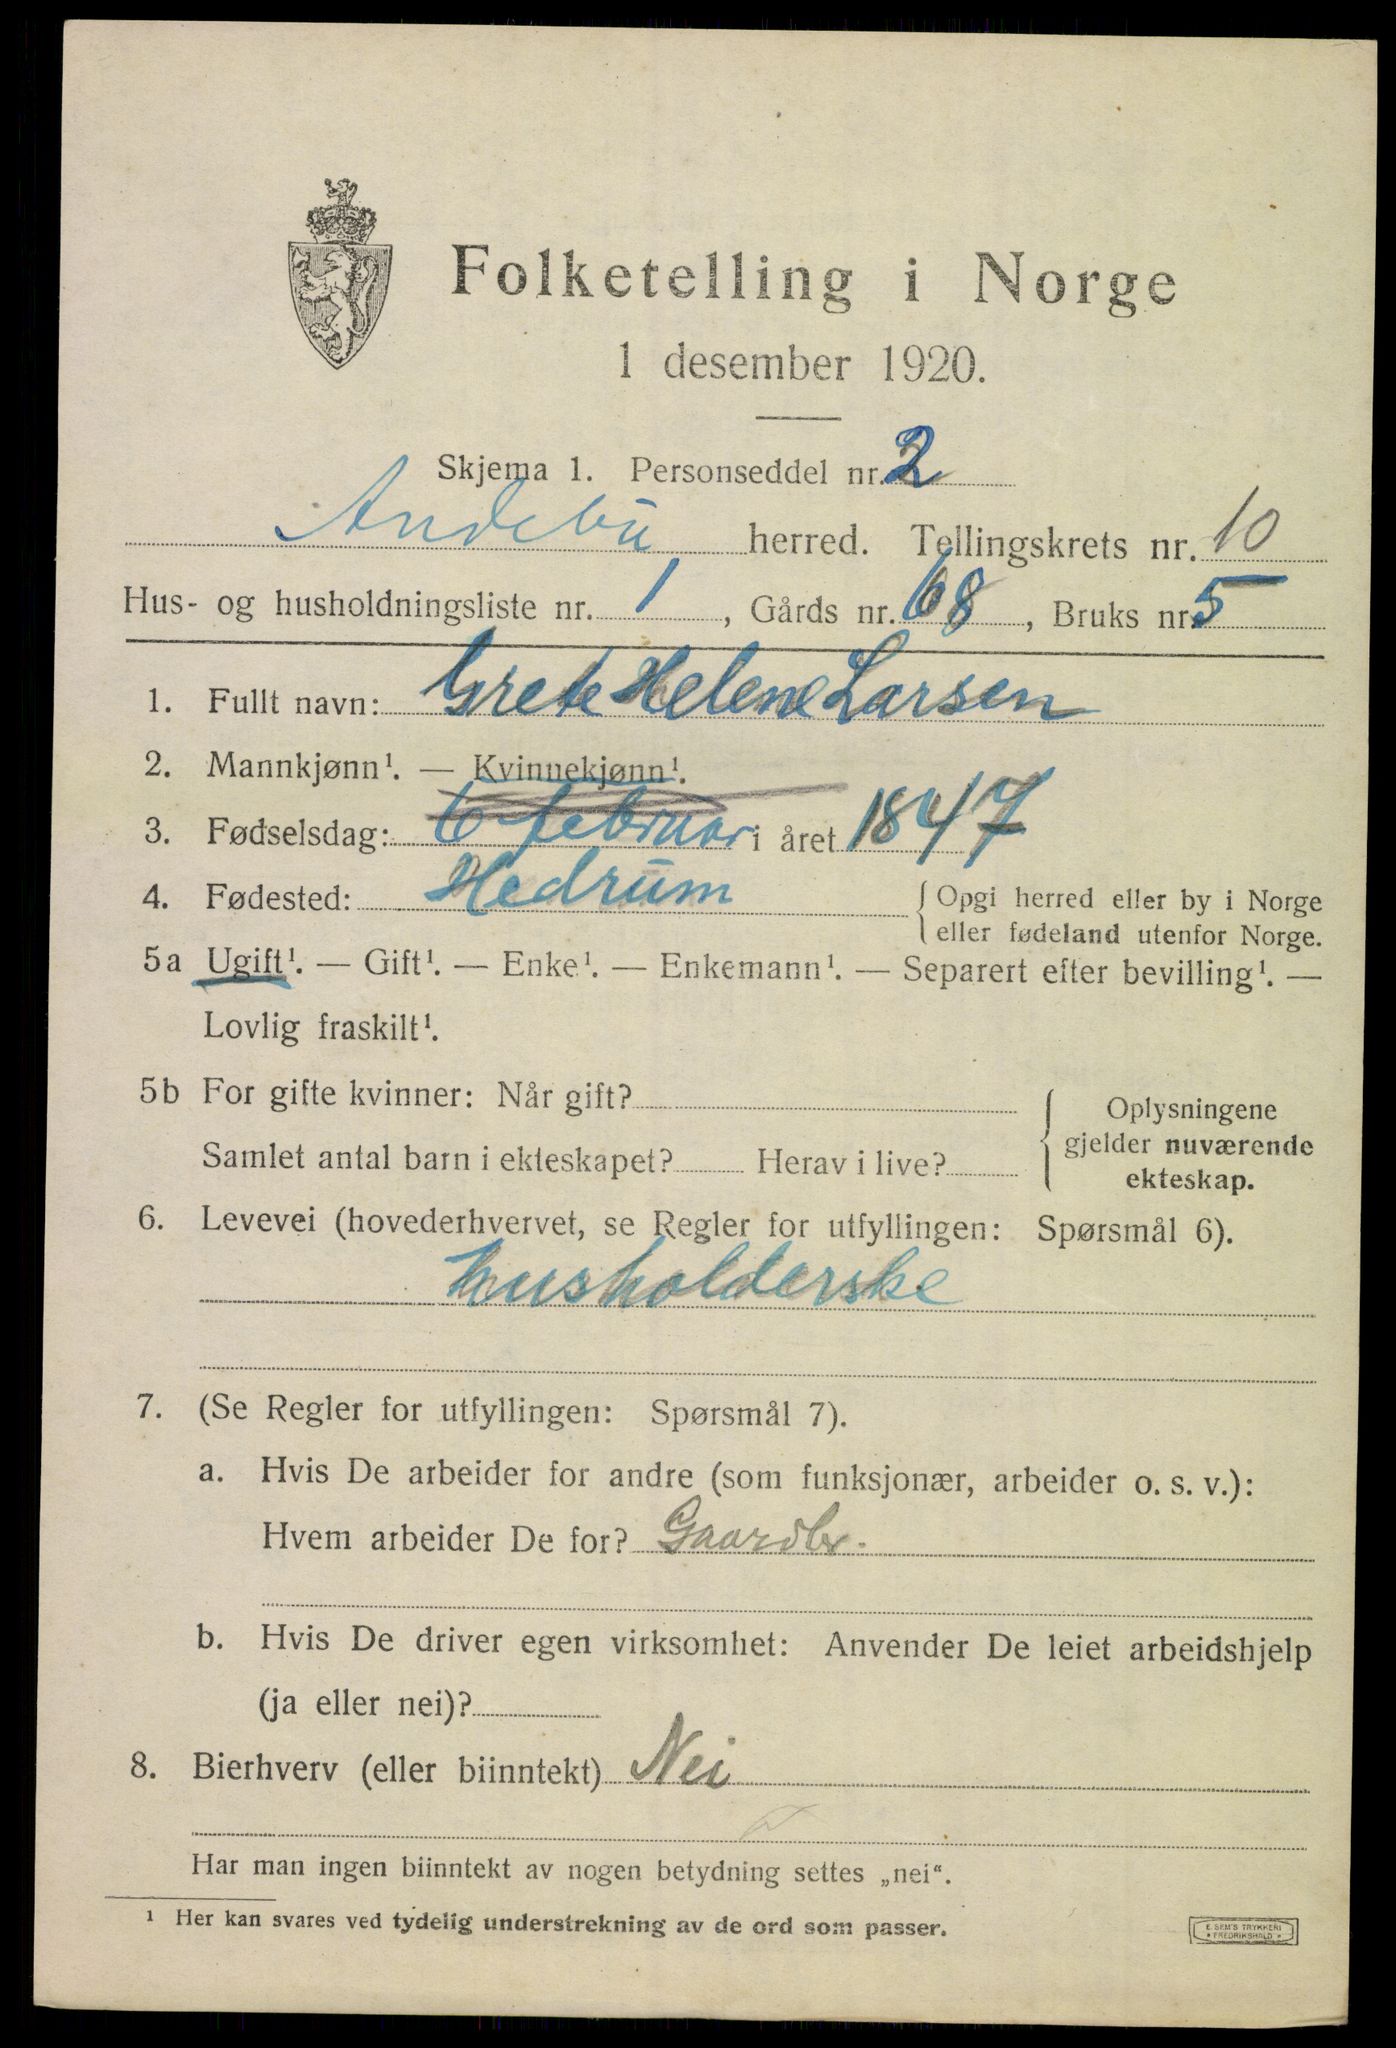 Folketelling i Norge
1 desember 1920.
Skjema 1. Personseddel nr. 2
Andebu herred. Tellingskrets nr. 10
Hus- og husholdningsliste nr. 1, Gårds nr. 68, Bruks nr. 5
1. Fullt navn: Grete Helene Larsen
2. Mannkjønn¹. — Kvinnekjønn¹.
3. Fødselsdag: 6 februar i året 1847
4. Fødested: Hedrum { Opgi herred eller by i Norge
eller fødeland utenfor Norge.
5a Ugift¹. — Gift¹. — Enke¹. — Enkemann¹. — Separert efter bevilling¹. —
Lovlig fraskilt¹.
5b For gifte kvinner: Når gift?
Samlet antal barn i ekteskapet? Herav i live?
{ Oplysningene
gjelder nuværende
ekteskap.
6. Levevei (hovederhvervet, se Regler for utfyllingen: Spørsmål 6).
husholderske
7. (Se Regler for utfyllingen: Spørsmål 7).
a. Hvis De arbeider for andre (som funksjonær, arbeider o. s. v.):
Hvem arbeider De for? Gaardbr.
b. Hvis De driver egen virksomhet: Anvender De leiet arbeidshjelp
(ja eller nei)?
8. Bierhverv (eller biinntekt) Nei
Har man ingen biinntekt av nogen betydning settes „nei“.
¹ Her kan svares ved tydelig understrekning av de ord som passer.
E. SEM'S TRYKKERI
* FREDRIKSHALD *